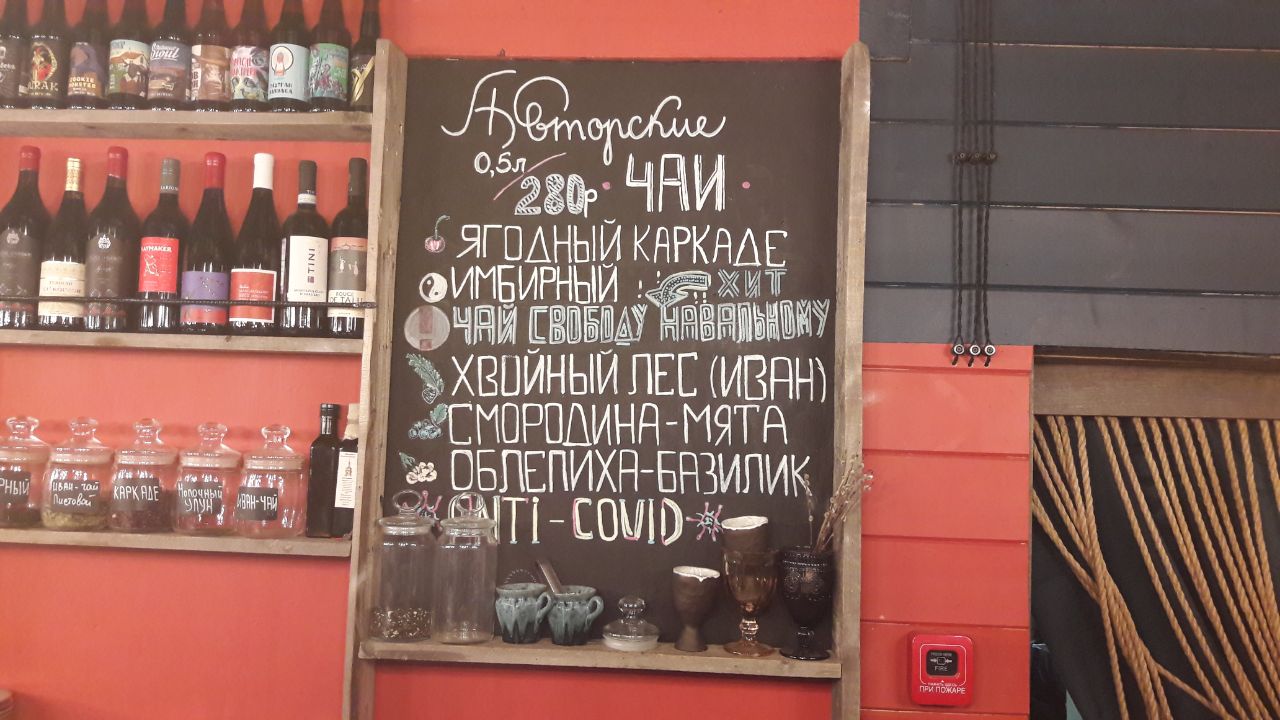 Авторские
0,5л/280р • ЧАИ •
ЯГОДНЫЙ КАРКАДЕ
ИМБИРНЫЙ ХИТ
ЧАЙ СВОБОДУ НАВАЛЬНОМУ
ХВОЙНЫЙ ЛЕС (ИВАН)
СМОРОДИНА-МЯТА
ОБЛЕПИХА-БАЗИЛИК
ANTI-COVID
TINI
КАРКАДЕ
Иван-чай
Листовой
Молочный
УЛУН
ИВАН-ЧАЙ
FIRE
ПРИ ПОЖАРЕ